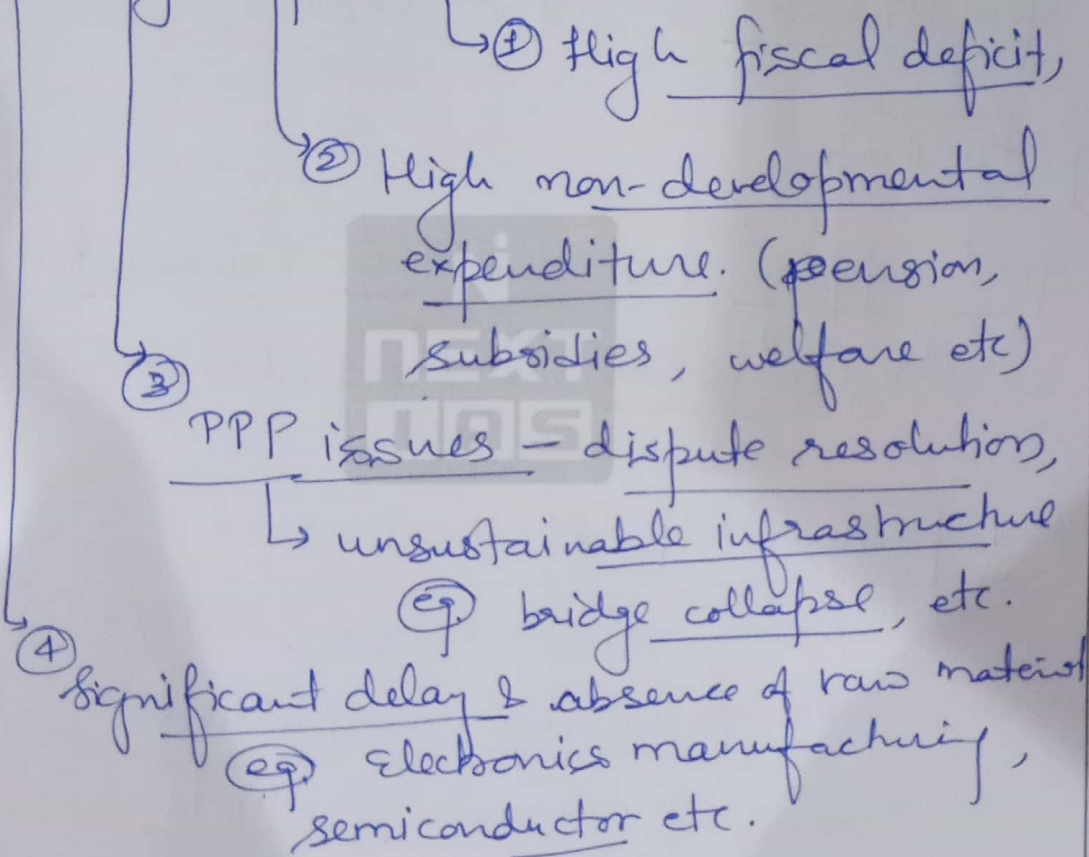 ① High fiscal deficit,
② High non-developmental
expenditure. (pension,
subsidies, welfare etc)
③
PPP issues - dispute resolution,
↳ unsustainable infrastructure
eg. bridge collapse, etc.
④
Significant delay & absence of raw material
eg. Electronics manufacturing,
semiconductor etc.
NEXT
IAS